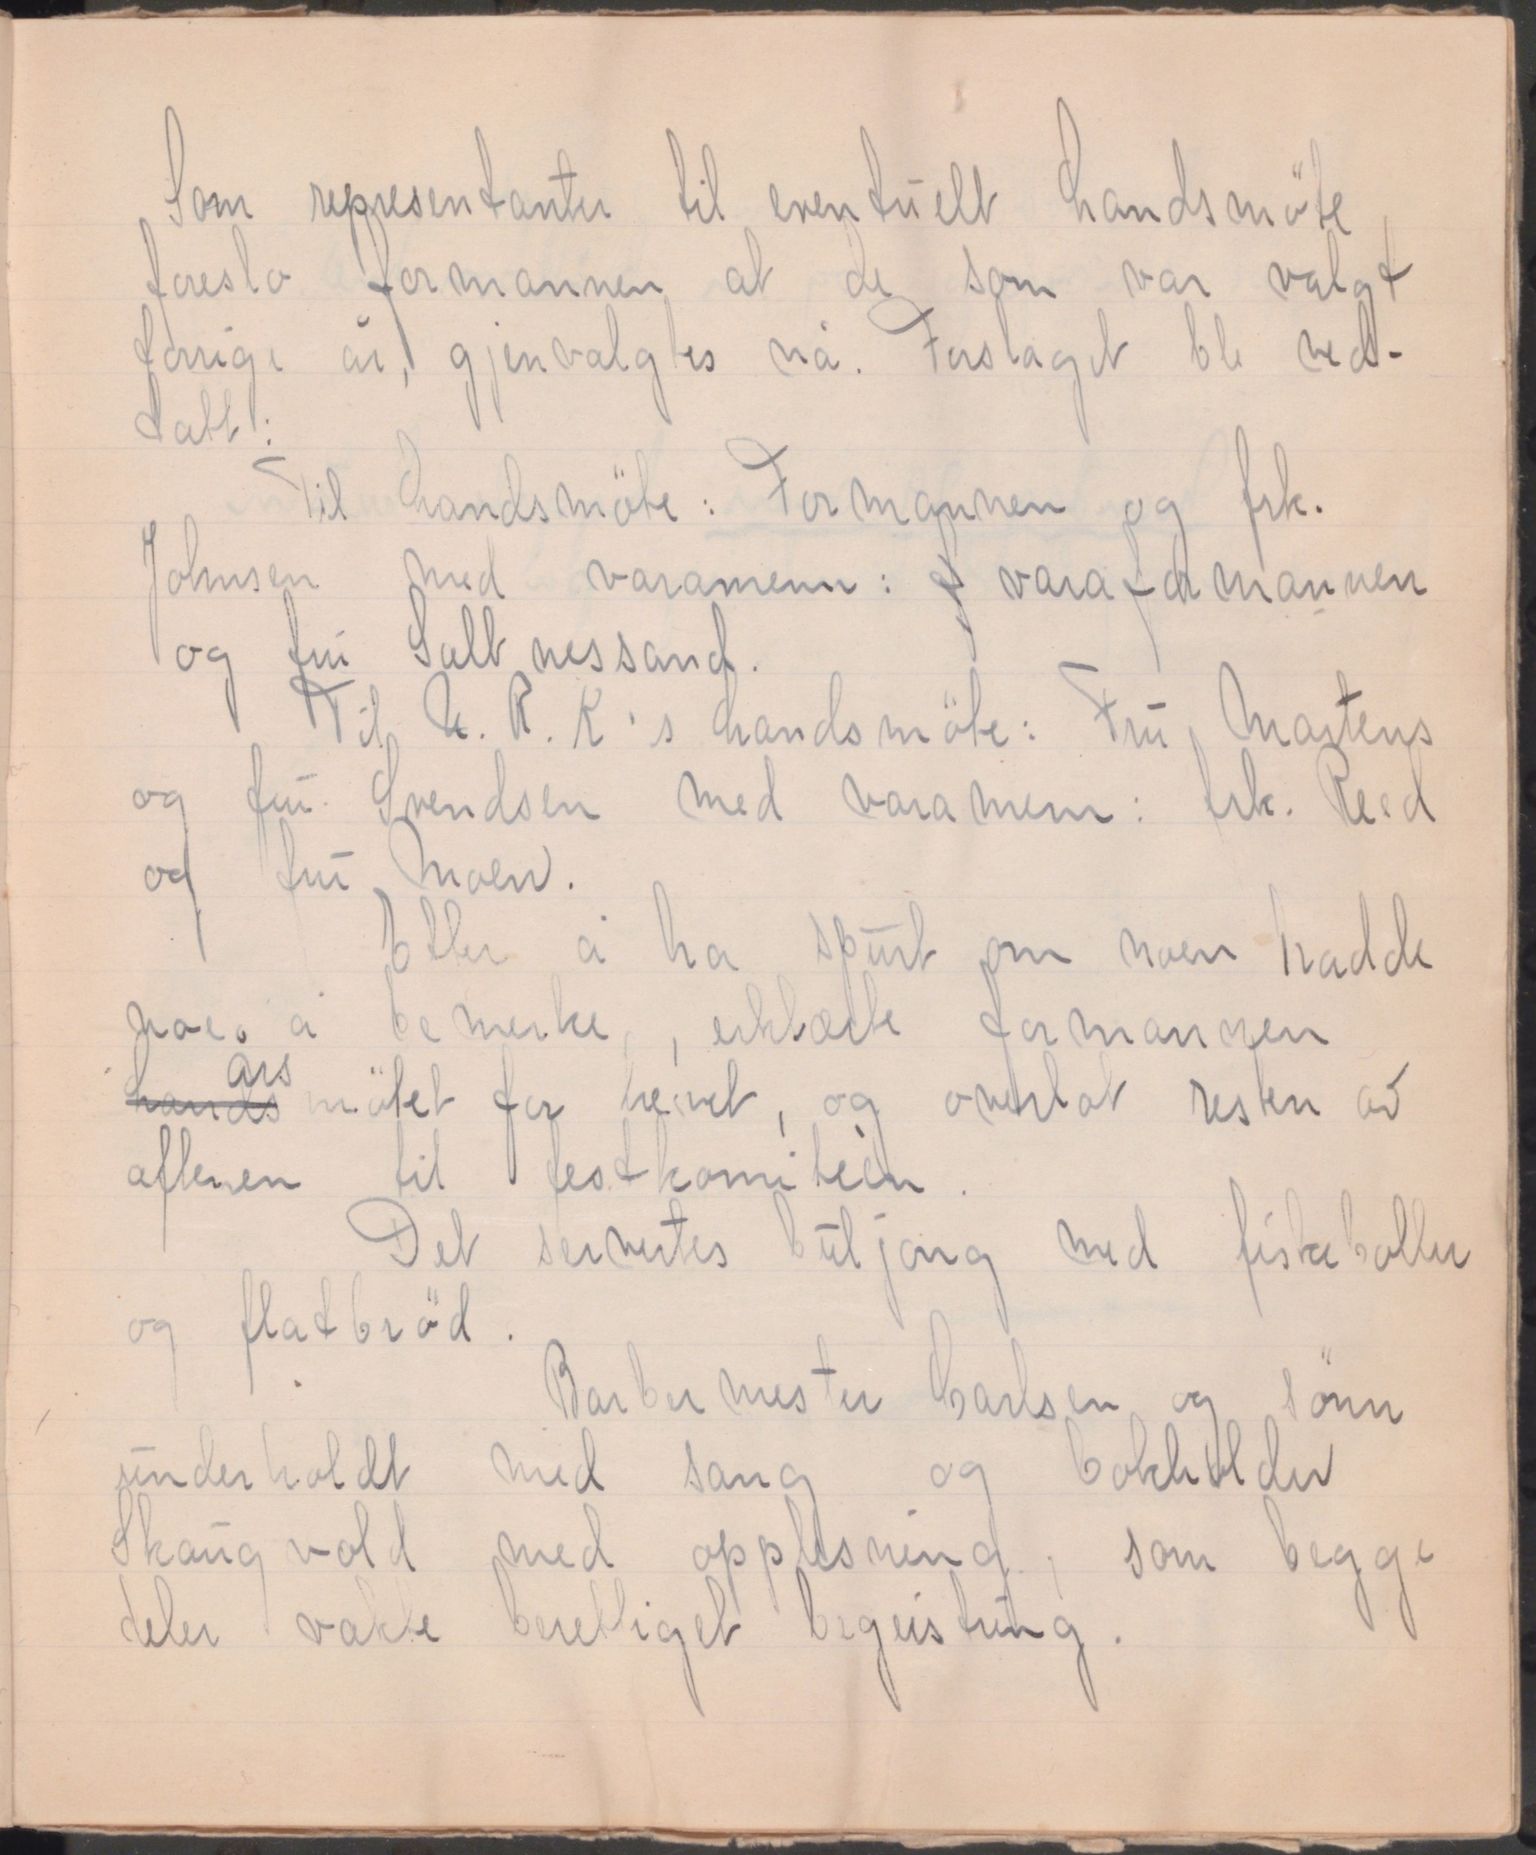 Som representanter til eventuelt landsmöte
foreslo formannen at de som var valgt
forrige år, gjenvalgtes nå. Forslaget ble ved-
tatt:
Til landsmöte: Formannen og frk.
Johnsen med varamenn: varaformannen
og fru Saltnessand.
Til U.R.K's landsmöte: Fru Martens
og fru Svendsen med varamenn: frk. Reed
og fru Moen.
Etter å ha spurt om noen hadde
noe å bemerke, erklærte formannen
års
lands mötet for hevet, og overlot resten av
aftenen til festkomitéen.
Det servertes buljong med fiskeboller
og flatbröd.
Barbermester Carlsen og sönn
underholdt med sang og bokholder
Skaugvold med opplesning, som begge
deler vakte berettiget begeistring.